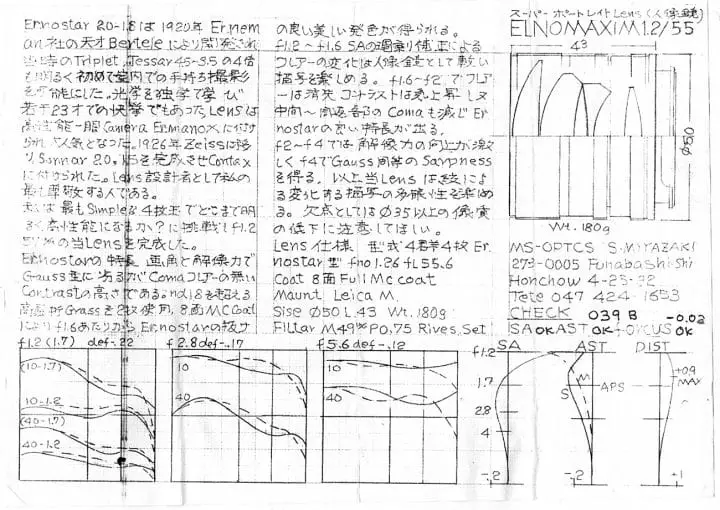 Ernostar 2.0-1.8は1920年 Ernem
an社の天才Berteleにより開発され
当時のTriplet, Tessar 4.5-3.5の4倍
も明るく初めて室内での手持ち撮影
を可能にした。光学を独学で学び
若干23才での快挙でもあった。Lensは
高性能一眼Camera Ermanoxに付け
られ人気となった。1926年Zeissに移
りSonnar 2.0, 1.5を完成させContax
に付けられた。Lens設計者として私の
最も尊敬する人である。
私は最もSimpleな4枚玉でどこまで明
るく高性能になるか?に挑戦しf1.2
の当Lensを完成した。
Ernostarの特長 画角と解像力で
Gauss型に劣るがComaフレアーの無い
Contrastの高さである。nd1.8を超える
高屈折Grassを2枚使用,8面MC Coat
により f1.6あたりから, Ernostarの抜け
の良い美しい発色が得られる。
f1.2~f1.6 SAの調節り補正による
フレアーの変化は人像鏡として軟い
描写を楽しめる。f1.6~f2でフレアー
は消失 コントラストは急上昇し又
中間~周辺各部のComaも減じEr
nostarの良い特長が出る。
f2~f4では解像力の向上が激
しくf4でGauss同等のSarpness
を得る。以上当Lensは絞によ
る変化する描写の多様性を楽め
る。欠点としてはØ35以上の像質
の低下に注意してほしい。
Lens仕様 型式4羣4枚Er
nostar型 fno1.26 fL55.6
Coat 8面Full Mc coat
Maunt Leica M.
Sise Ø50 L.43 Wt.180g
FIltar M49 P0.75 Rives.Set
スーパー ポートレイトLens(人像鏡)
ELNOMAXIM1.2/55
43
Ø50
Wt.180g
MS-OPTCS S.MIYAZAKI
273-0005 Funabashi-Shi
Honchow 4-25-32
Tete 047 424-1653
CHECK 039B -0.02
SA OK AST OK forcus OK
f1.2(1.7) def-.22
f2.8def-.17
f5.6def-.12
SA AST DIST
(10-1.7)
10-1.2
(40-1.7)
40-1.2
10
40
10
40
f1.2
1.7
2.8
4
-.2
S M APS
-.2
+0.9
MAX
+1